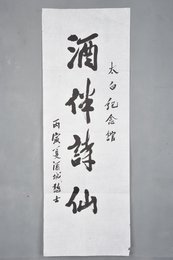 太白纪念館
酒伴詩仙
丙寅夏